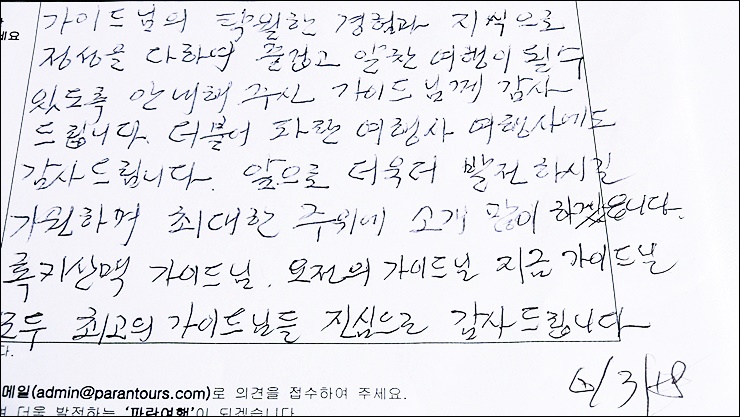 가이드님의 탁월한 경험과 지식으로
세요
정성을 다하여 즐겁고 알찬 여행이 될 수
있도록 안내해 주신 가이드님께 감사
드립니다. 더불어 파란 여행사 여행사에도
감사드립니다. 앞으로 더욱더 발전하시길
기원하며 최대한 주위에 소개 많이 하겠읍니다.
록키산맥 가이드님. 오전의 가이드님 지금 가이드님
모두 최고의 가이드님들 진심으로 감사드립니다
다.
메일(admin@parantours.com)로 의견을 접수하여 주세요.
더욱 발전하는 '파란여행'이 되겠습니다.